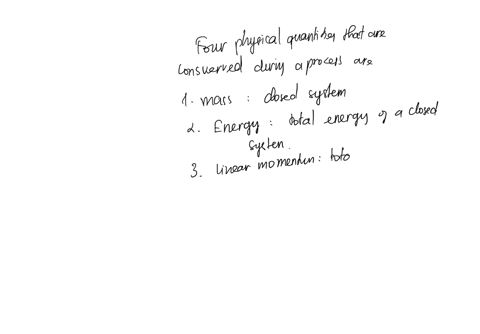 Four physical quantities that are
consverved during a process are
1. mass : closed system
2. Energy : total energy of a closed
system.
3. linear momentum : toto